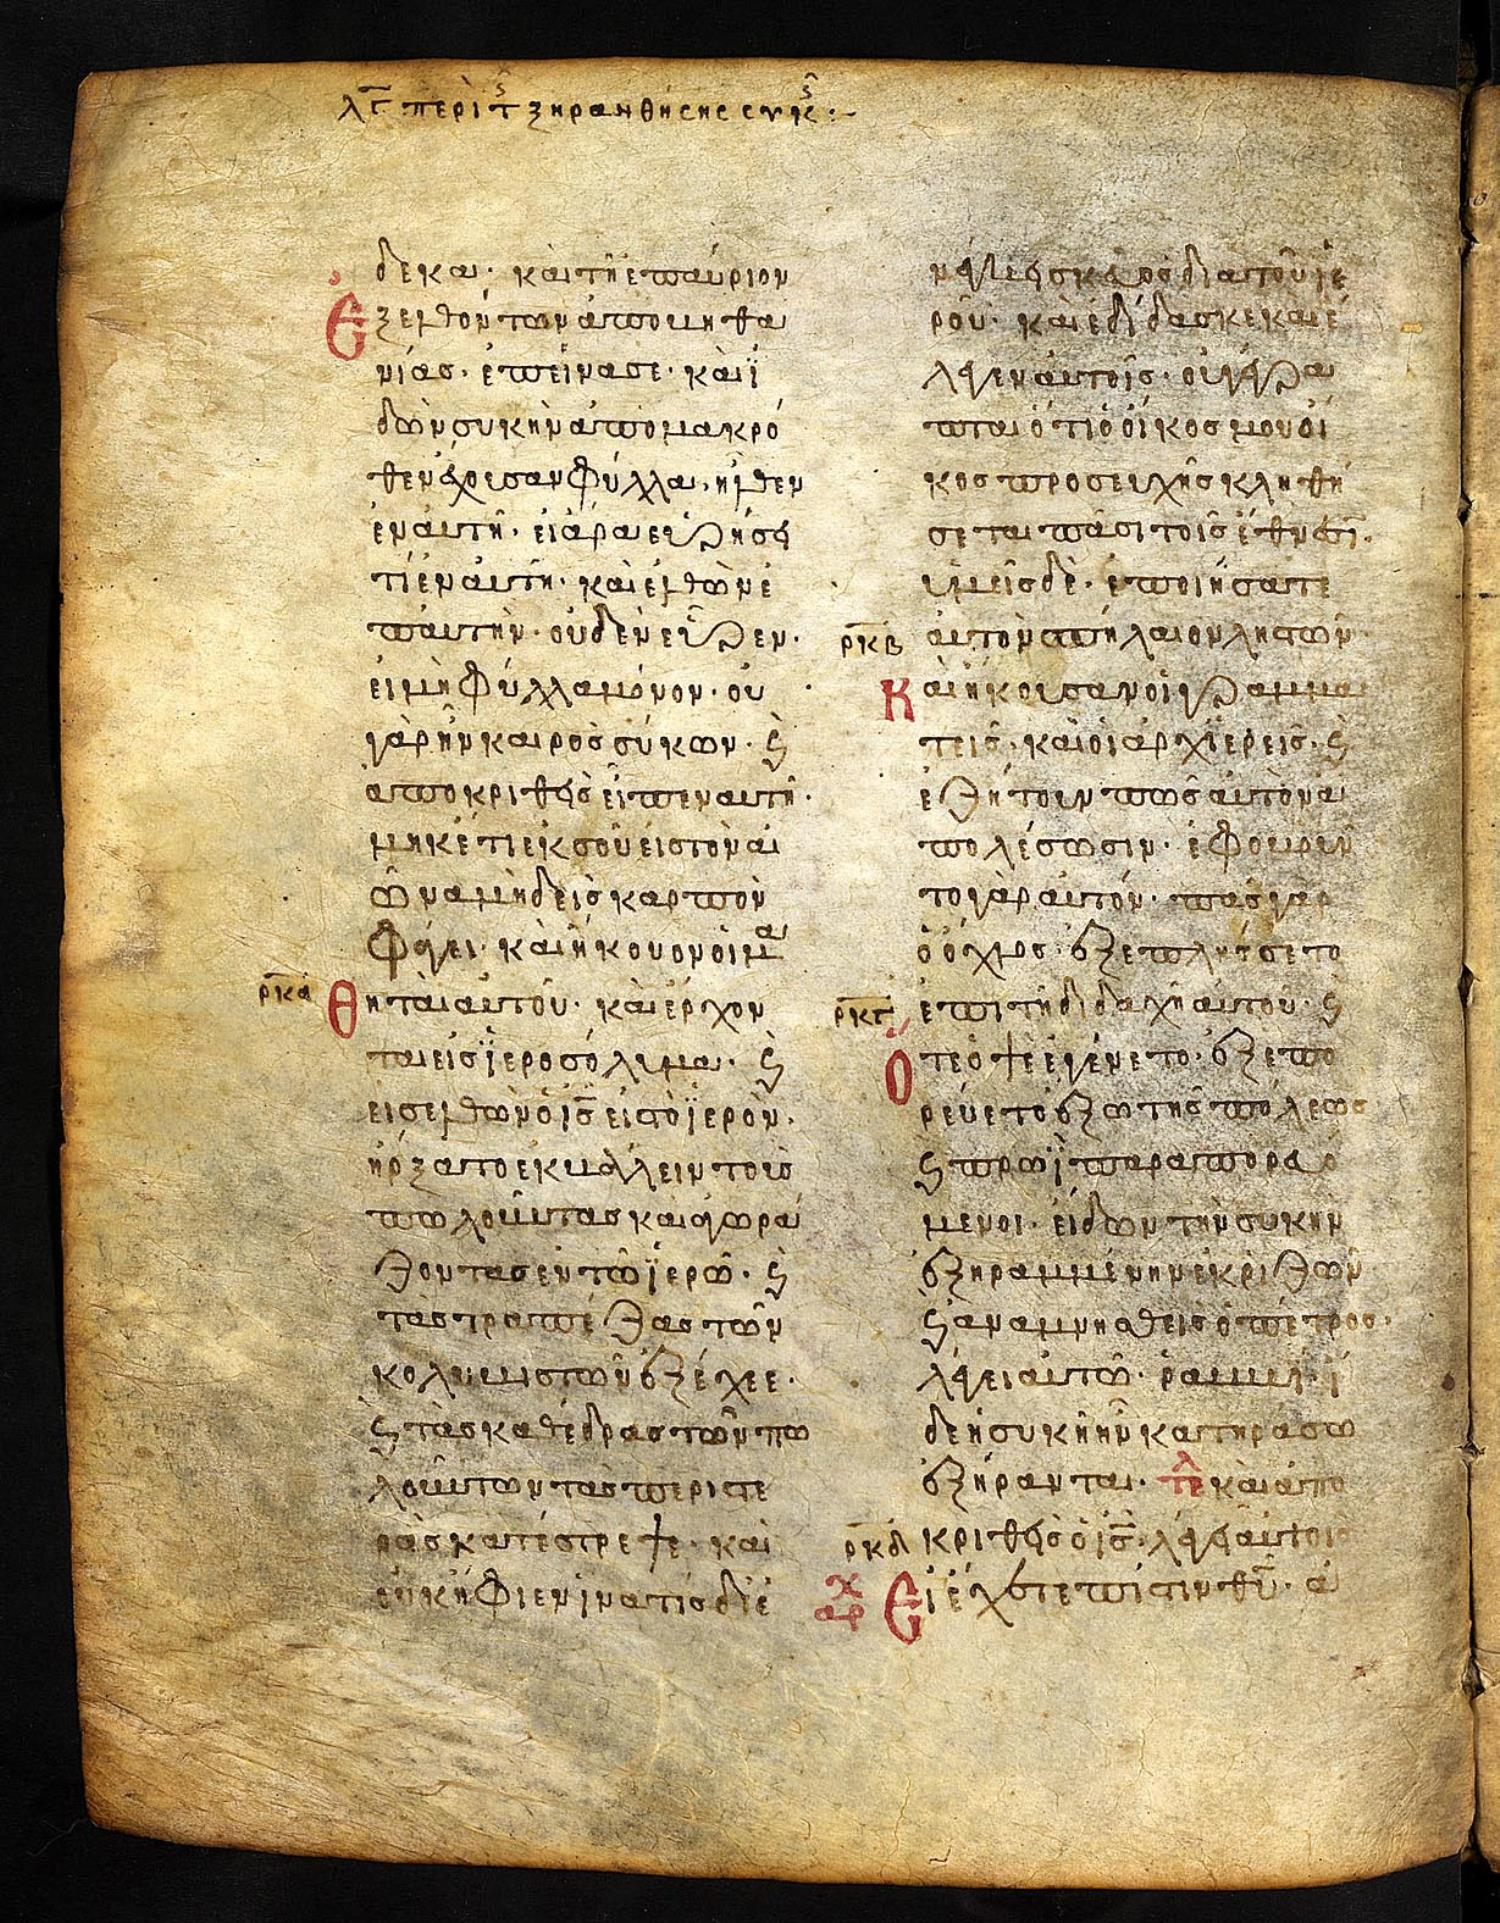 λγ περὶ τς ξηρανθήσης συκς :-
δεκα· καὶ τῆ ἐπαύριον
ἐξελθόντων ἀπο βηθα
νίας· ἐπείνασε· καὶ ϊ
δὼν συκὴν ἀπο μακρό
θεν ἔχουσαν φύλλα· ἦλθεν
ἐν αυτῆ· εἰ ἄρα εὑρήσει
τί ἐν αὐτῆ· καὶ ἐλθὼν ἐ
π αυτὴν· οὐδὲν εὗρεν·
εἰ μὴ φύλλα μόνον· ου
γὰρ ἦν καιρὸς σύκων· ϛ
αποκριθεὶς εἶπεν αυτῆ·
μηκέτι ἐκ σοῦ εἰς τὸν αἰ
ῶνα μηδεὶς καρπὸν
φάγει· καὶ ἤκουον οἱ μα
ρκα
θηταὶ αυτοῦ· καὶ ἔρχον
ται εἰς ϊεροσόλυμα· ϛ
εισελθὼν ὁ ις εἰς τὸ ϊερὸν·
ἤρξατο εκβάλλειν τοὺς
πωλοῦντας καὶ ἀγορά
ζοντας ἐν τῶ ϊερῶ· ϛ
τὰς τραπέζας τῶν
κολυβιστῶν ἐξέχεε·
ϛ τὰς καθέδρας τῶν πω
λούντων τὰς περιστε
ρὰς κατέστρεψε· καὶ
ουκ ἤφιεν ἵνα τίς διέ
νέγκει σκεῦος δια τοῦ ϊε
ροῦ· καὶ ἐδίδασκε καὶ ἔ
λεγεν αὐτοῖς· οὐ γέγρα
πται ὅτι ὁ οἶκος μου οἶ
κος προσευχῆς κληθή
σεται πᾶσι τοῖς ἔθνεσι·
ὑμεῖς δὲ· ἐποιήσατε
ρκβ
αυτὸν σπήλαιον ληστῶν·
Καὶ ἤκουσαν οἱ γραμμα
τεῖς· καὶ οἱ ἀρχϊερεῖς· ϛ
ἐζήτουν πῶς αὐτὸν ἀ
πολέσωσιν· ἐφοβοῦν
το γὰρ αυτόν· πᾶς γὰρ
ὁ ὄχλος ἐξεπλήτσετο
ρκγ
ἐπι τῆ διδαχῆ αυτοῦ· ϛ
ὅτε ὀψὲ ἐγένετο· ἐξεπο
ρεύετο ἔξω τῆς πόλεως
ϛ πρωῒ παραπορευό
μενοι· εἶδον τὴν συκὴν
ἐξηραμμένην ἐκ ριζῶν
ϛ αναμνησθεὶς ὁ πέτρος·
λέγει αυτῶ· ραββί· ἴ
δε ἡ συκῆ ἣν κατηράσω
ἐξήρανται· τε καὶ απο
ρκδ
κριθεὶς ὁ ις· λέγει αὐτοῖς
χ
αρ
Εἰ ἔχετε πίστιν θυ· ἀ